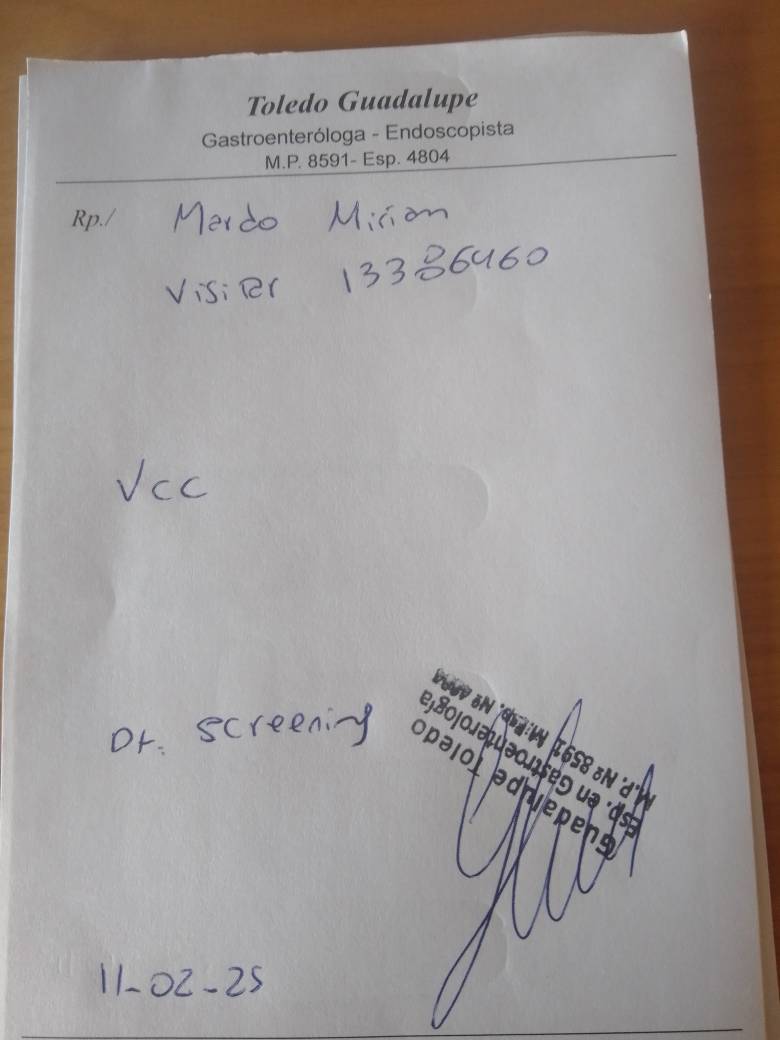 Toledo Guadalupe
Gastroenteróloga - Endoscopista
M.P. 8591- Esp. 4804
Rp./ Mardo Mirian
Visitar
VCC
Dt: screening
Guadalupe Toledo
Esp. en Gastroenterología
M.P. Nº 8591 M.Esp. Nº
11-02-25